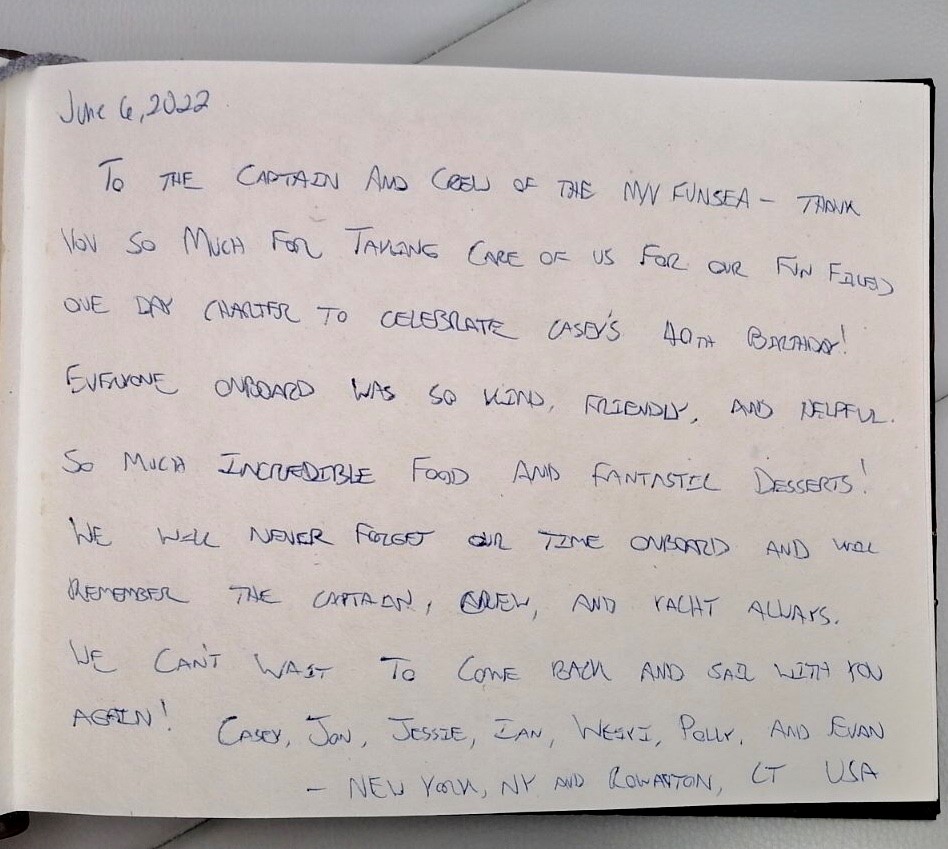 June 6, 2022
To THE CAPTAIN AND CREW OF THE M/V FUNSEA – THANK
YOU SO MUCH FOR TAKING CARE OF US FOR OUR FUN FILLED
ONE DAY CHARTER TO CELEBRATE CASEY'S 40TH BIRTHDAY!
EVERYONE ONBOARD WAS SO KIND, FRIENDLY, AND HELPFUL.
SO MUCH INCREDIBLE FOOD AND FANTASTIC DESSERTS!
WE WILL NEVER FORGET OUR TIME ONBOARD AND WILL
REMEMBER THE CAPTAIN, CREW, AND YACHT ALWAYS.
WE CAN'T WAIT TO COME BACK AND SAIL WITH YOU
AGAIN! CASEY, JON, JESSIE, IAN, POLLY, AND EVAN
– NEW YORK, NY AND ROWAYTON, CT USA